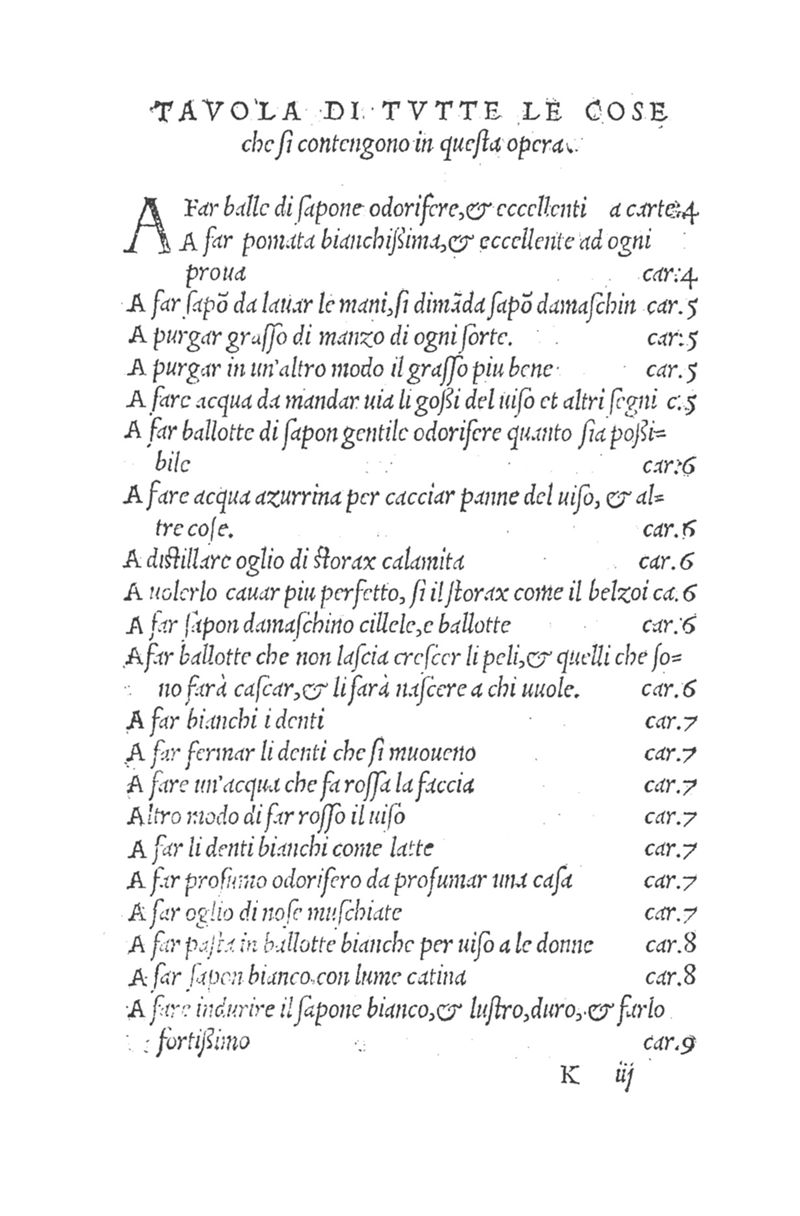 TAVOLA DI TVTTE LE COSE
che ſi contengono in queſta opera.
A FAr balle di ſapone odorifere,& eccellenti a carte 4
A far pomata bianchißima,& eccellente ad ogni
proua car. 4
A far ſapõ da lauar le mani,ſi dimãda ſapõ damaſchin car. 5
A purgar graſſo di manzo di ogni ſorte. car. 5
A purgar in un'altro modo il graſſo piu bene car. 5
A fare acqua da mandar uia li goßi del uiſo et altri ſegni c. 5
A far ballotte di ſapon gentile odorifere quanto ſia poßi=
bile car. 6
A fare acqua azurrina per cacciar panne del uiſo, & al=
tre coſe. car. 6
A diſtillare oglio di ſtorax calamita car. 6
A uolerlo cauar piu perfetto, ſi il ſtorax come il belzoi ca. 6
A far ſapon damaſchino cillele,e ballotte car. 6
A far ballotte che non laſcia creſcer li peli,& quelli che ſo=
no farà caſcar,& li farà naſcere a chi uuole. car. 6
A far bianchi i denti car. 7
A far fermar li denti che ſi muoueno car. 7
A fare un'acqua che fa roſſa la faccia car. 7
Altro modo di far roſſo il uiſo car. 7
A far li denti bianchi come latte car. 7
A far profumo odorifero da profumar una caſa car. 7
A far oglio di noſe muſchiate car. 7
A far paſta in ballotte bianche per uiſo a le donne car. 8
A far ſapon bianco con lume catina car. 8
A fare indurire il ſapone bianco,& luſtro,duro,& farlo
fortißimo car. 9
K iij